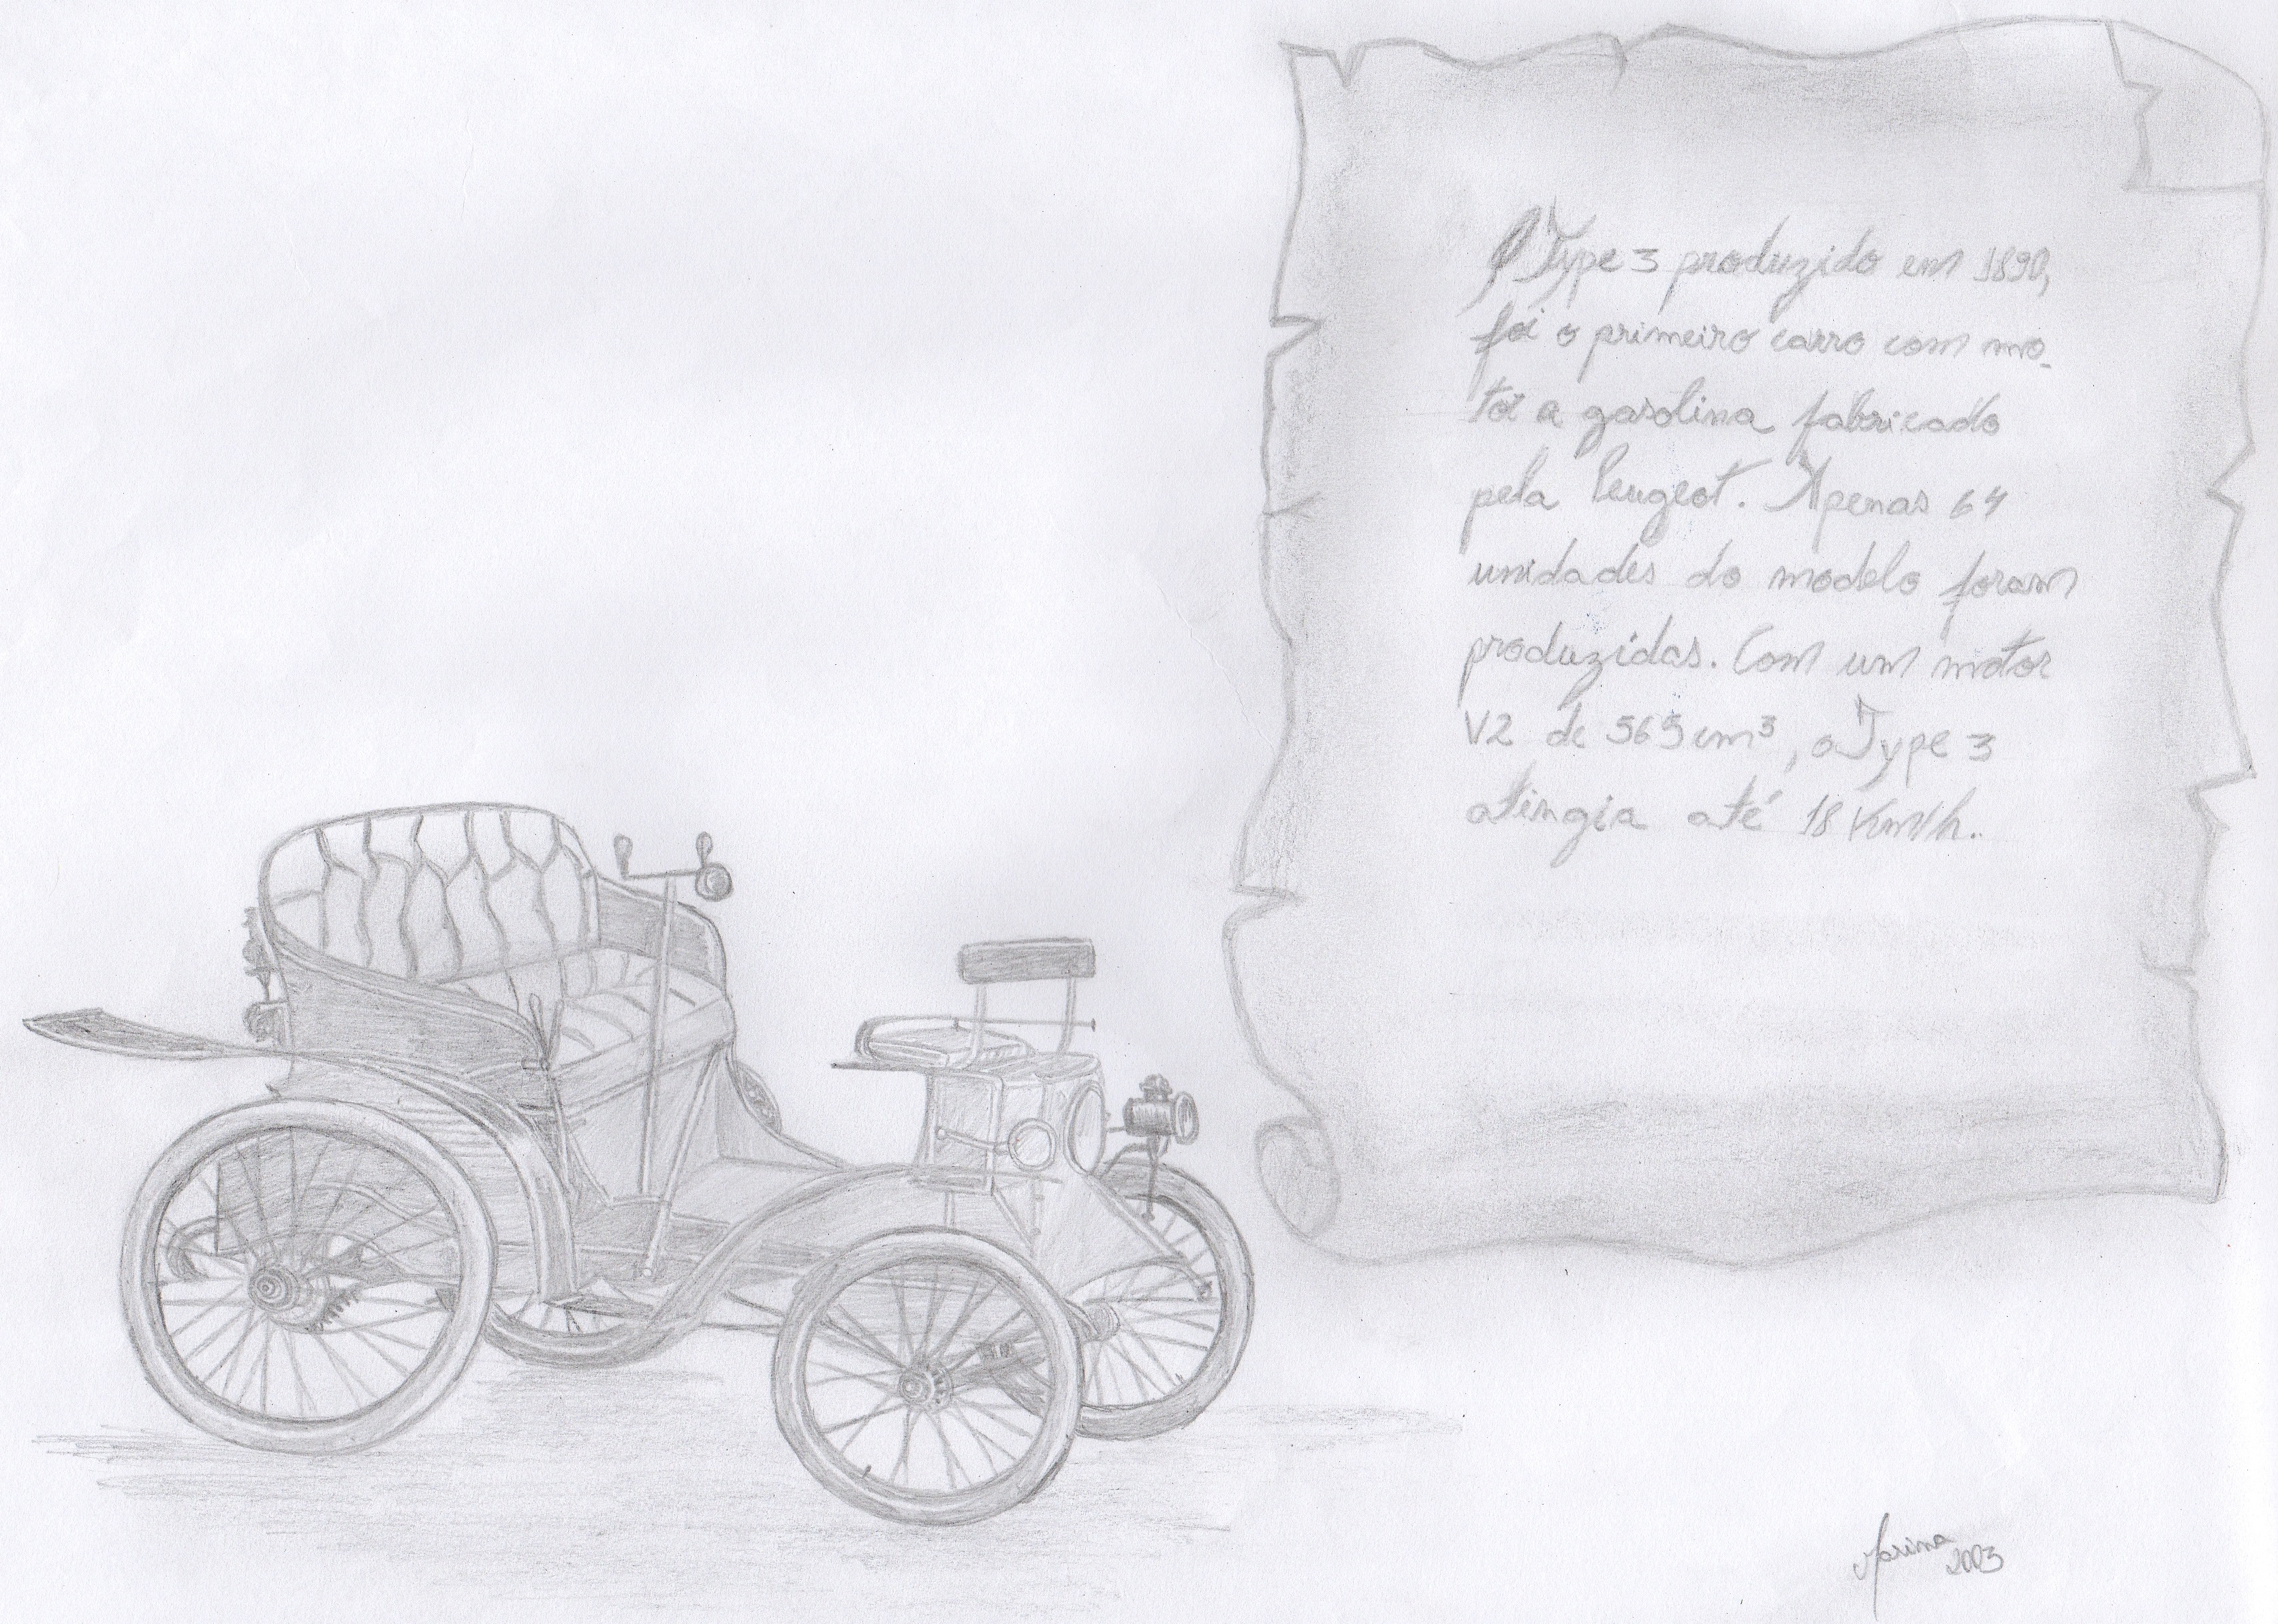 O Type 3 produzido em 1890,
foi o primeiro carro com mo-
tor a gasolina fabricado
pela Peugeot. Apenas 64
unidades do modelo foram
produzidas. Com um motor
V2 de 565 cm³, o Type 3
atingia até 18 Km/h.
Marina
2003